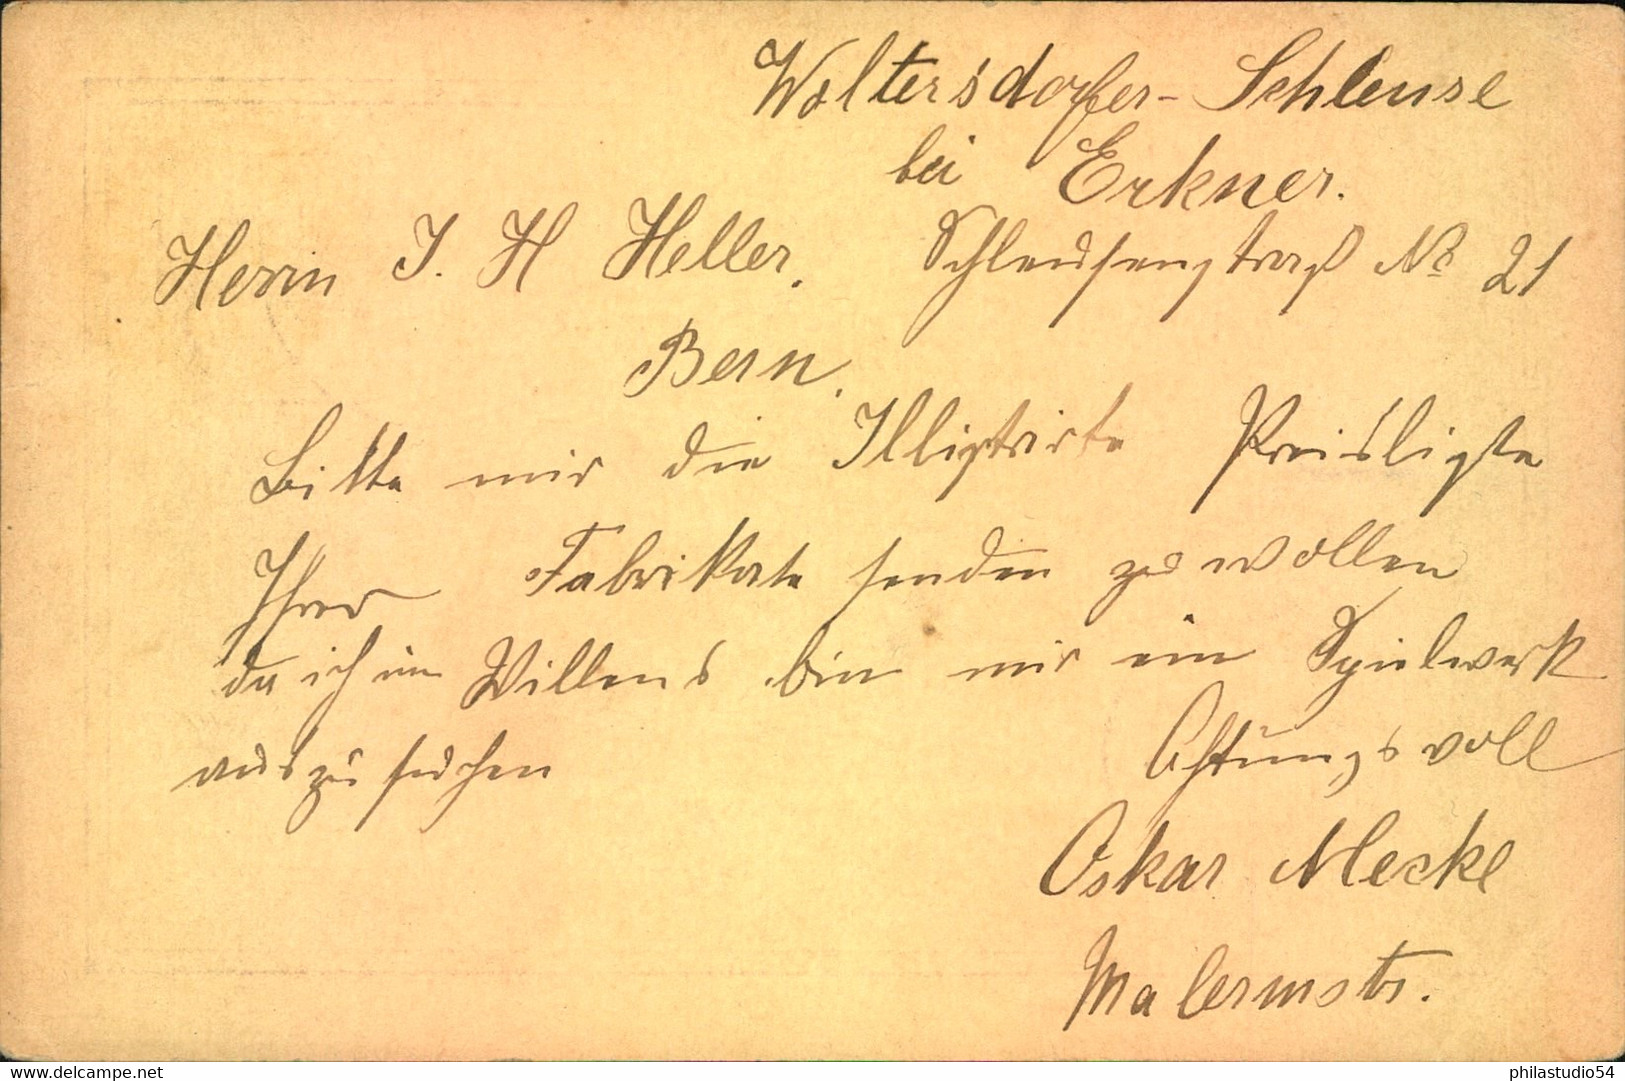 Woltersdorfer-Schleuse
bei Erkner.
Herrn J. H Heller. Schleusenstraß № 21
Bern.
Bitte mir die Illustrirte Preisliste
Ihrer Fabrikate senden zu wollen
da ich im Willens bin mir ein Spielwerk
auszusuchen Achtungsvoll
Oskar Mecke
Malermstr.
www.delcampe.net philastudio54